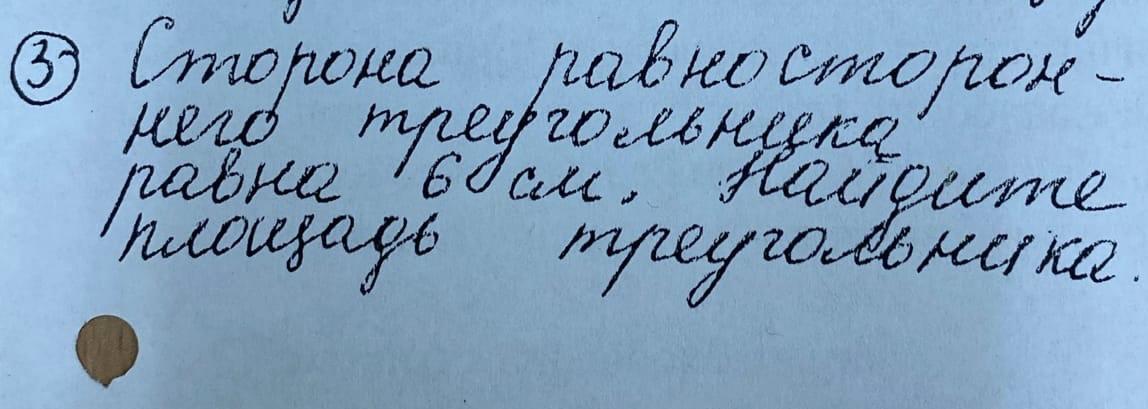 ③ Сторона равносторон-
него треугольника
равна 6 см. Найдите
площадь треугольника.